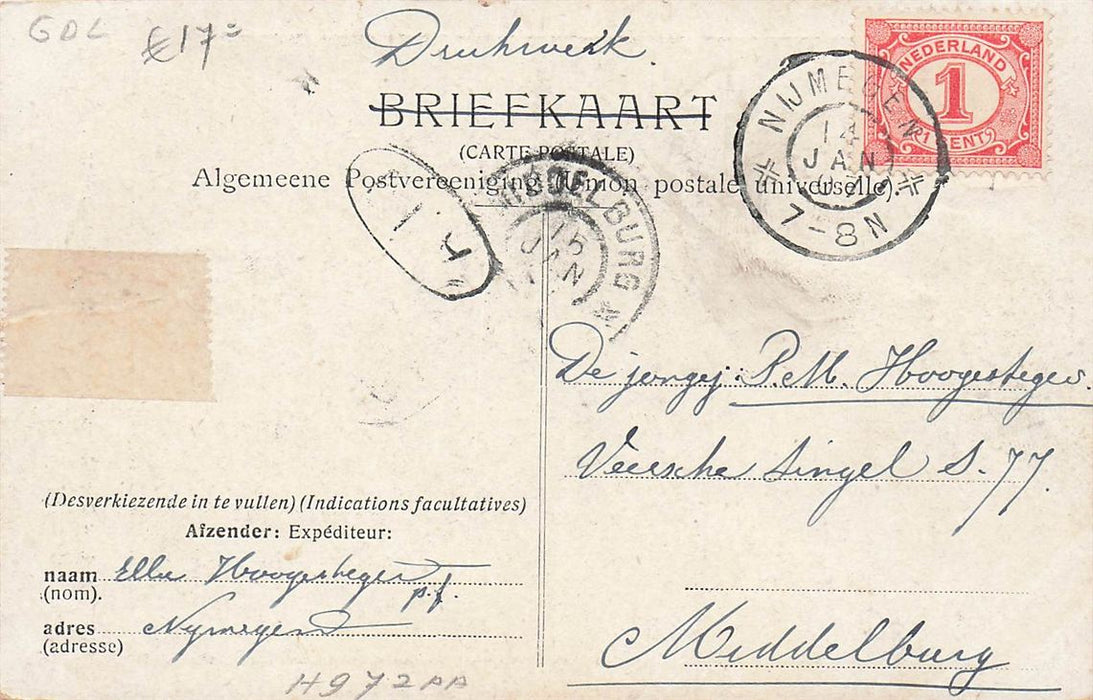 GDL £17=
Drukwerk.
BRIEFKAART
(CARTE POSTALE)
Algemeene Postvereeniging (Union postale universelle).
NEDERLAND
1
1 CENT
NIJMEGEN
14
JAN
7-8N
MIDDELBURG
15
JAN
De jongej: P.M. Hoogesteger.
Veersche Singel S. 77.
Middelburg
(Desverkiezende in te vullen) (Indications facultatives)
Afzender: Expéditeur:
naam Hoogesteger p.f.
(nom).
adres Nymegen
(adresse)